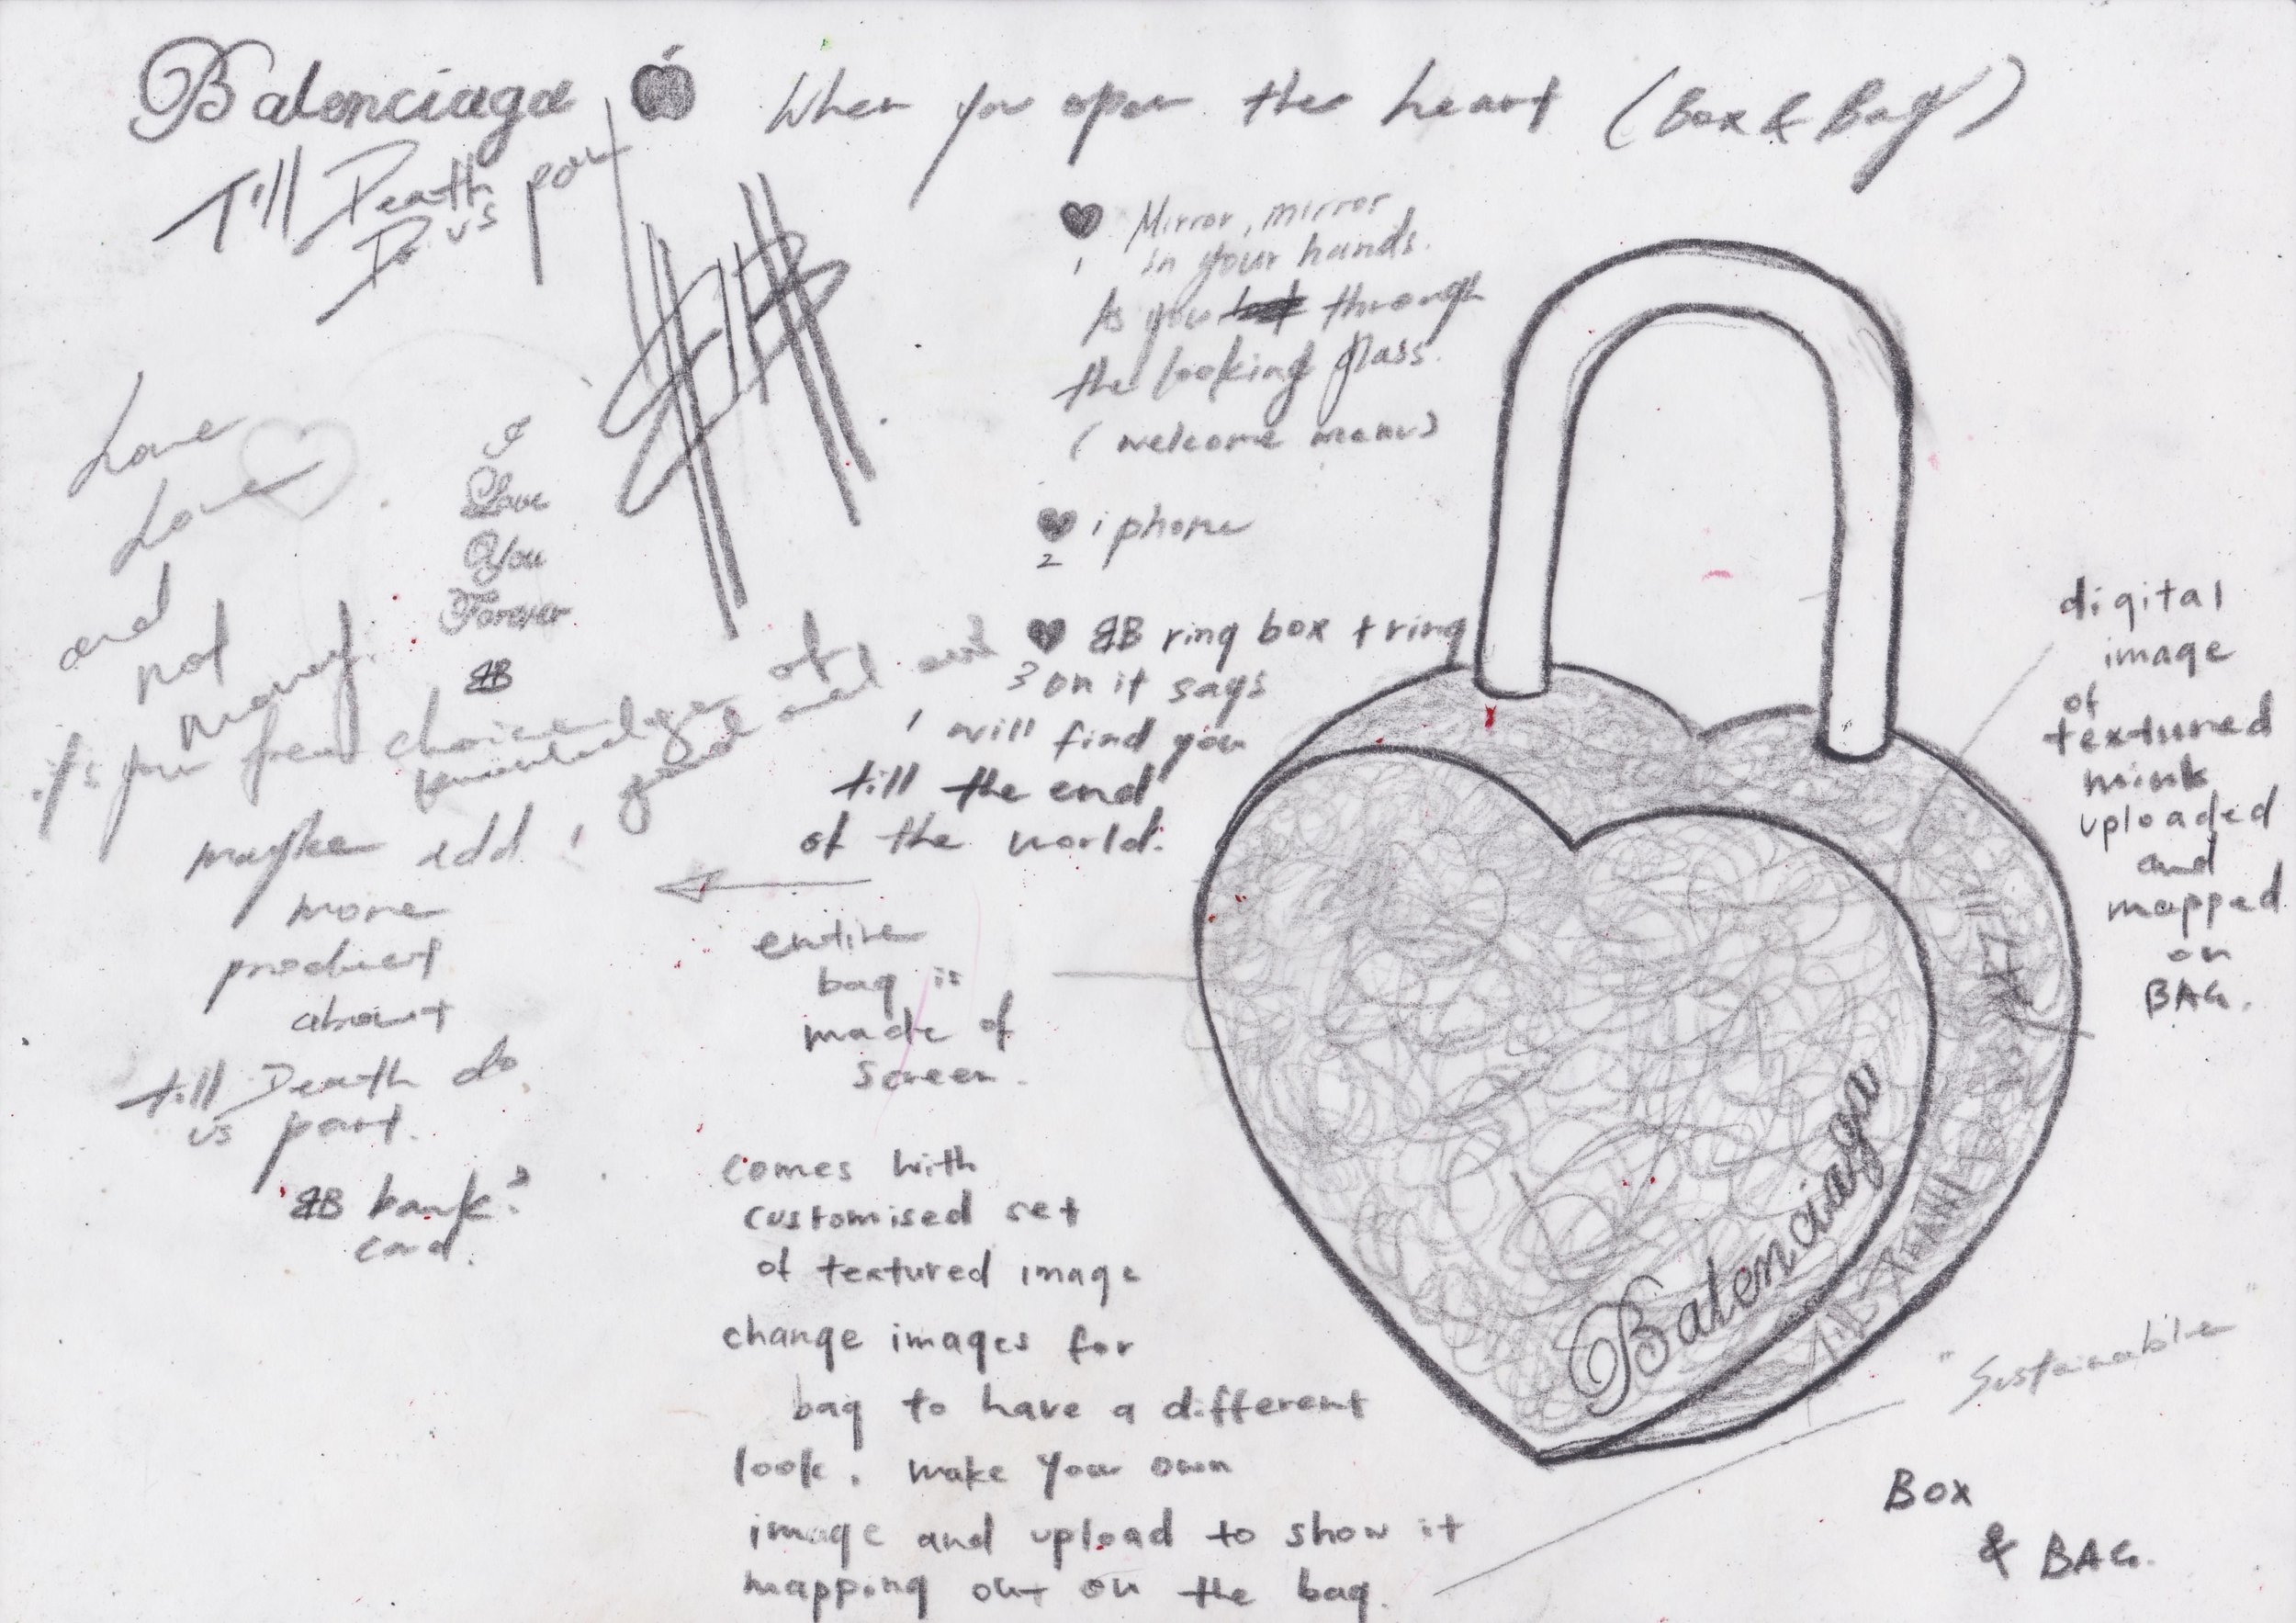 Balenciaga
When you open the heart (Box & Bag)
Till Death
Do us part
Mirror, mirror
1 in your hands.
As you through
the looking glass.
(welcome menu)
2 iphone
BB ring box + ring
3 on it says
I will find you
till the end
of the world.
Love
Love
and
not
money.
I
Love
You
Forever
BB
it's your free choice of
knowledge good and evil
maybe add !
more
product
about
till Death do
us part.
BB bank?
card.
entire
bag is
made of
screen.
comes with
customised set
of textured image
change images for
bag to have a different
look. make your own
image and upload to show it
mapping out on the bag.
digital
image
of
textured
mink
uploaded
and
mapped
on
BAG.
Balenciaga
"Sustainable"
Box
& BAG.